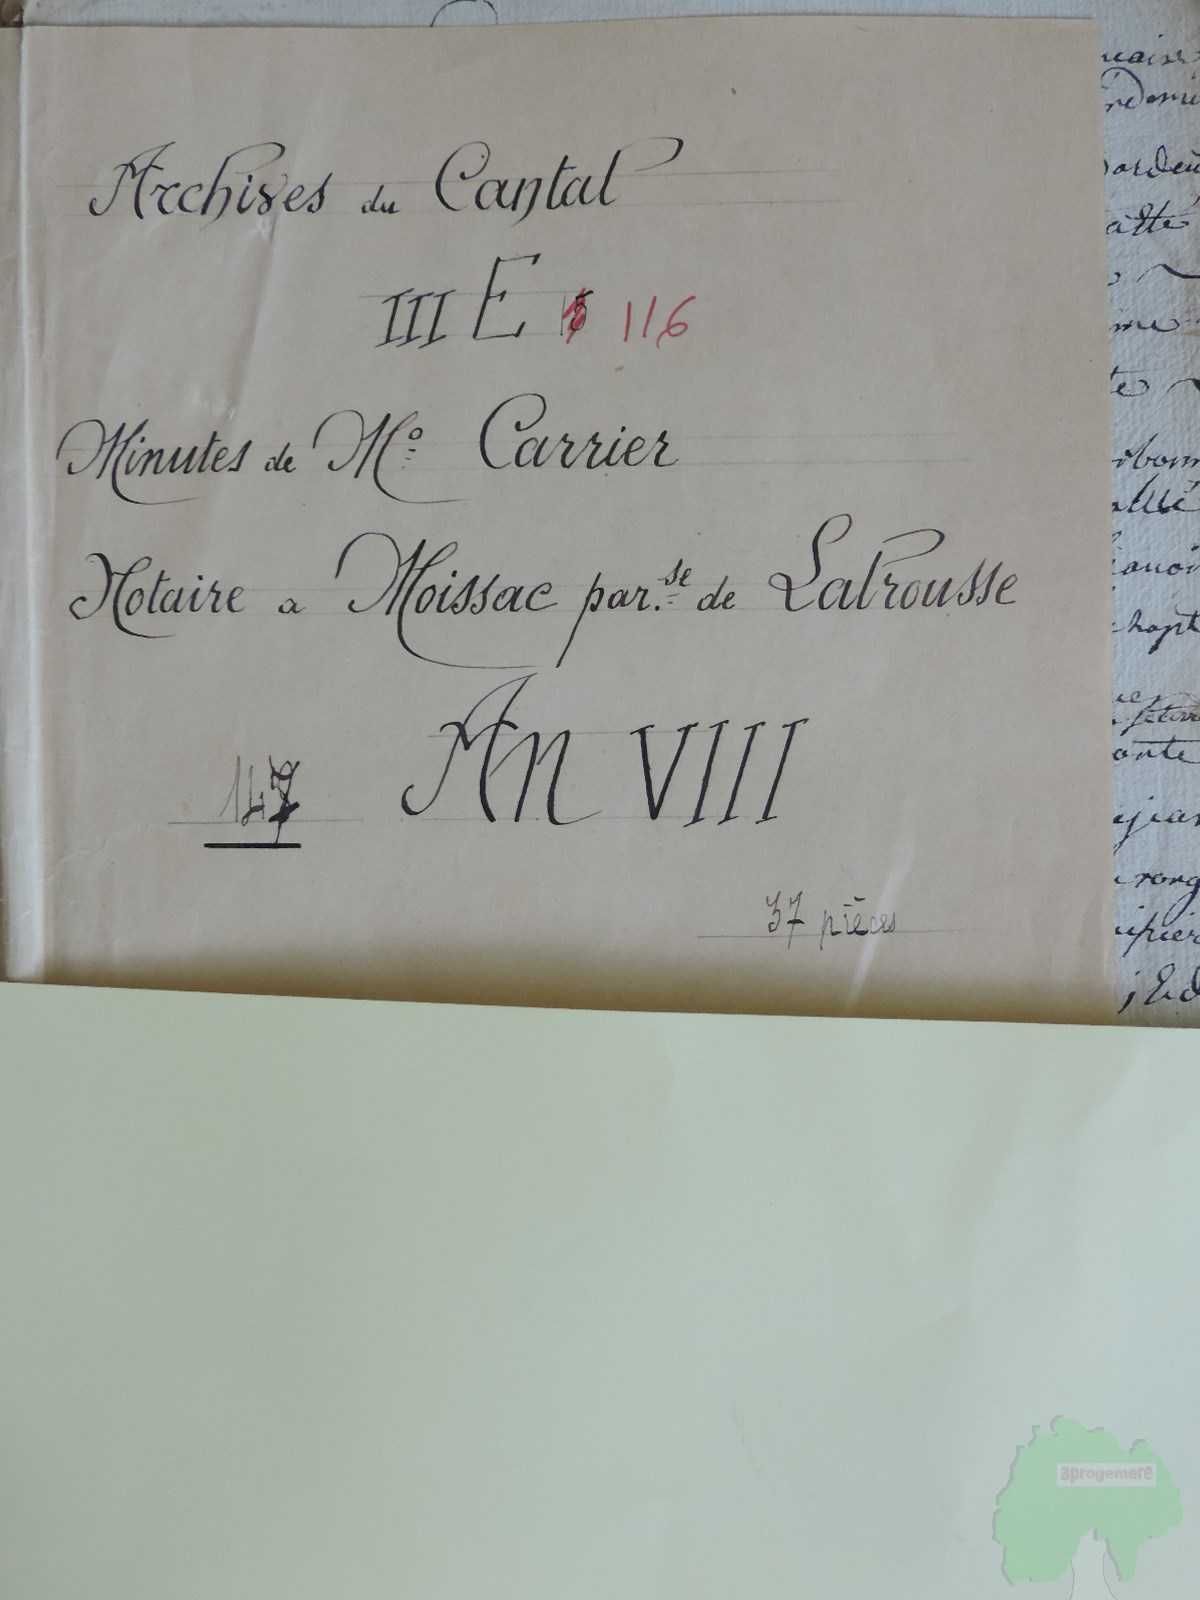 Archives du Cantal
III E 116
Minutes de Mᵒ Carrier
Notaire a Moissac par.se de Lalrousse
An VIII
147
37 pièces
aprogemere